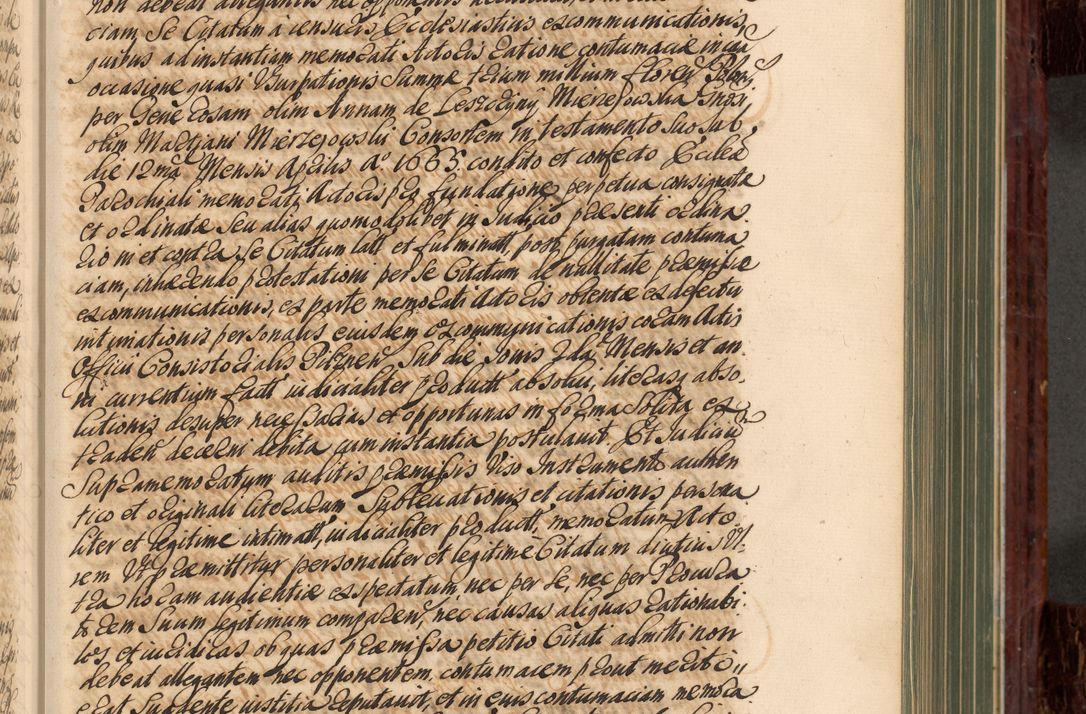 non debeat allegantis nec opponentis
ciam, Se Citatum à censuris Ecclesiasticis excommunicationis,
quibus ad instantiam memorati Actoris ratione contumaciæ in
occasione quasi Usurpationis Summæ trium millium floren. Polon.
per Gene rosam olim Annam de Leszczyny Mierzejowska
olim Martjani Mierzejowski Consortem in testamento suo sub
die 12ma Mensis Aprilis Ao. 1665. condito et confecto Eccleæ
Parochiali memorati Actoris pro fundatione perpetua consignatæ
et ordinatæ seu alias quomodolibet in Judicio præsenti ordina
rio in et contra se Citatum latt et fulminatt, post purgatam contuma
ciam, inhærendo protestationi per se Citatum de nullitate præmissæ
excommunicationis, ex parte memorati Actoris obtentæ ex defectu
intimationis personalis eiusdem excommunicationis coram Actis
Officii Consistorialis Pilznen. Sub die Jovis 2da Mensis et an
ni currentium fatt iudicialiter produtt absolvi, literasq abso
lutionis desuper necessarias et opportunas in forma Solita ex
traden. decerni debita cum instantia postulavit. Et Judicium
Supramemoratum auditis præmissis Viso Instrumento authen
tico et originali literarum Sublevationis et citationis persona
liter et legitime intimatt, iudicialiter produtt, memoratum Acto
rem Ut præmittitur personaliter et legitime Citatum diutius Ul
tra horam audientiæ exspectatum, nec per se, nec per Procura
torem Suum legitimum comparen. nec causas aliquas rationabi
les et iuridicas ob quas præmissa petitio Citati admitti non
debeat allegantem nec opponentem, contumacem prout meriti
erat Suadente iustitia reputavit, et in eius contumaciam memora